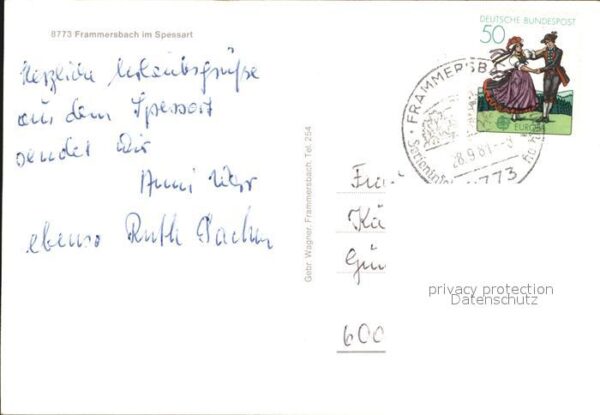 8773 Frammersbach im Spessart
Herzliche Urlaubsgrüße
aus dem Spessart
sendet Dir
Anni
ebenso Ruth
Gebr. Wagner, Frammersbach, Tel. 254
DEUTSCHE BUNDESPOST
50
EUROPA
FRAMMERSB
28.9.81-8
8773
Fra
Kü
Gün
600
privacy protection
Datenschutz